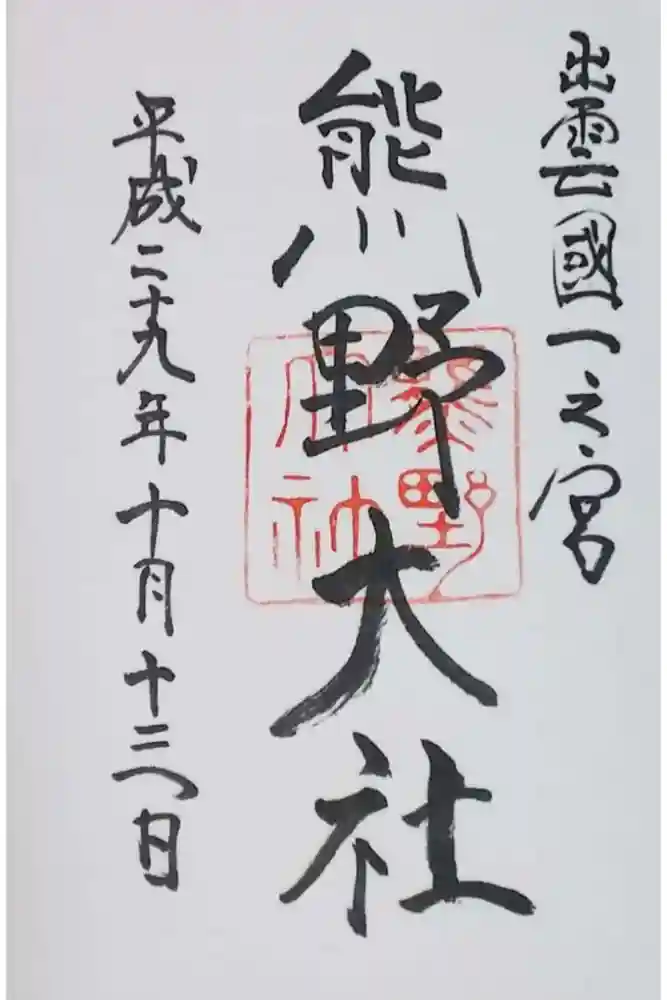 出雲國一之宮
熊野大社
熊野
大社
平成二十九年十月十三日